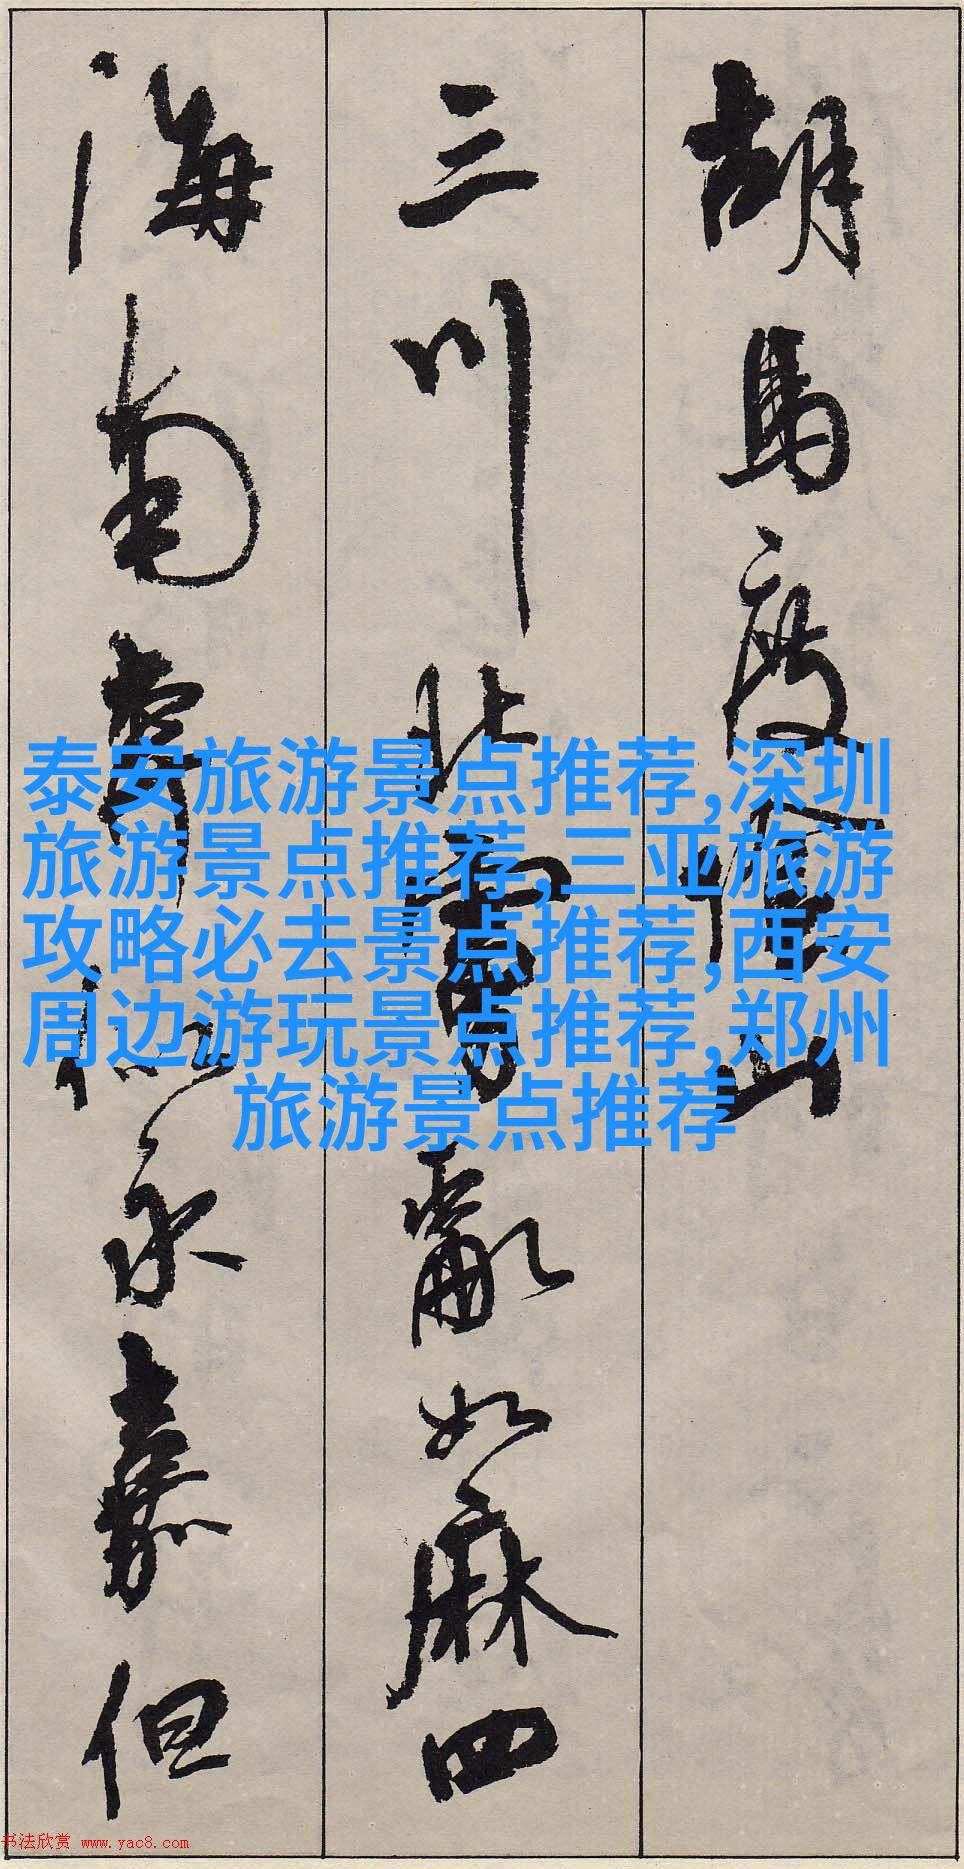 胡马度阴山
三川北虏乱如麻四
海南奔似永嘉但
泰安旅游景点推荐,深圳
旅游景点推荐,三亚旅游
攻略必去景点推荐,西安
周边游玩景点推荐,郑州
旅游景点推荐
书法欣赏 www.yac8.com